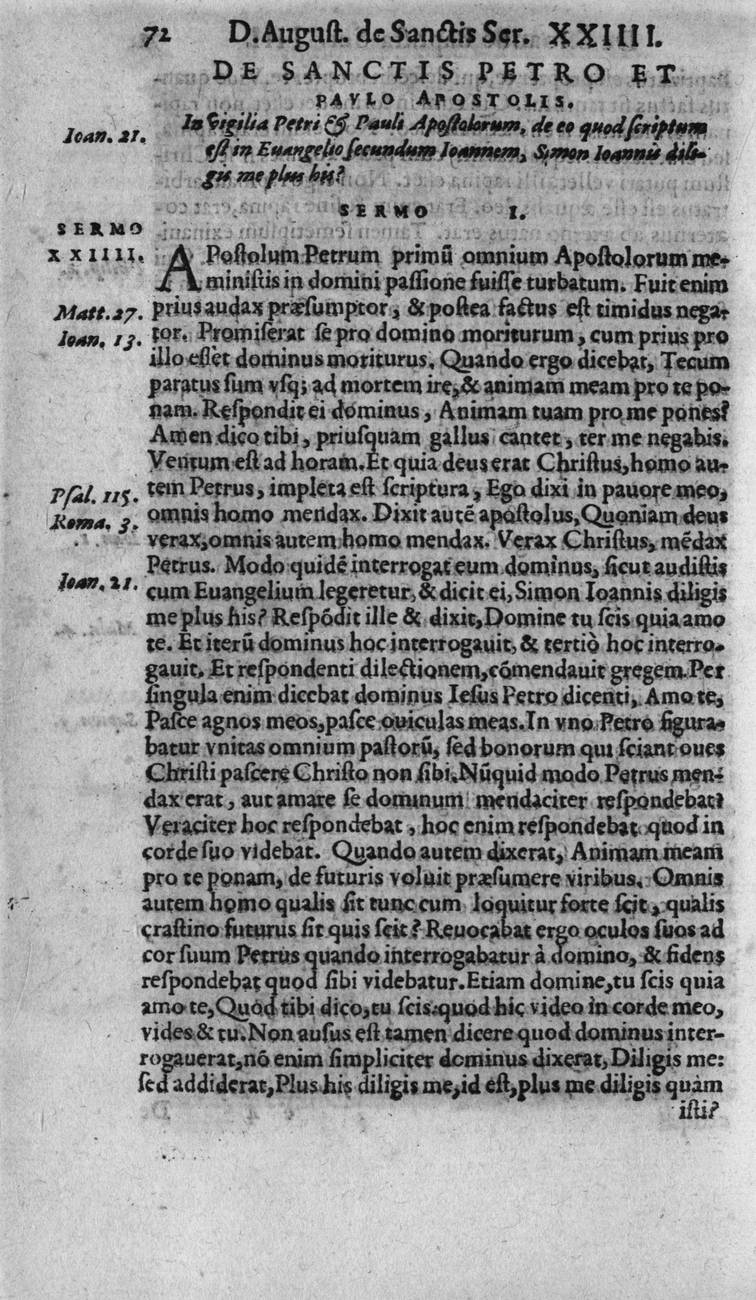 72 D. Auguſt. de Sanctis Ser. XXIIII.
DE SANCTIS PETRO ET
PAVLO APOSTOLIS.
Ioan. 21. In Vigilia Petri & Pauli Apoſtolorum, de eo quod ſcriptum
eſt in Euangelio ſecundum Ioannem, Simon Ioannis dili-
gis me plus his?
SERMO I.
SERMO
XXIIII. APoſtolum Petrum primũ omnium Apoſtolorum me-
miniſtis in domini paſſione fuiſſe turbatum. Fuit enim
Matt. 27. prius audax præſumptor, & poſtea factus eſt timidus nega-
Ioan. 13. tor. Promiſerat ſe pro domino moriturum, cum prius pro
illo eſſet dominus moriturus. Quando ergo dicebat, Tecum
paratus ſum vſq; ad mortem ire, & animam meam pro te po-
nam. Reſpondit ei dominus, Animam tuam pro me pones?
Amen dico tibi, priuſquam gallus cantet, ter me negabis.
Ventum eſt ad horam. Et quia deus erat Chriſtus, homo au-
Pſal. 115. tem Petrus, impleta eſt ſcriptura, Ego dixi in pauore meo,
Roma. 3. omnis homo mendax. Dixit autẽ apoſtolus, Quoniam deus
verax, omnis autem homo mendax. Verax Chriſtus, mẽdax
Petrus. Modo quidẽ interrogat eum dominus, ſicut audiſtis
Ioan. 21. cum Euangelium legeretur, & dicit ei, Simon Ioannis diligis
me plus his? Reſpõdit ille & dixit, Domine tu ſcis quia amo
te. Et iterũ dominus hoc interrogauit, & tertiò hoc interro-
gauit. Et reſpondenti dilectionem, cõmendauit gregem. Per
ſingula enim dicebat dominus Ieſus Petro dicenti, Amo te,
Paſce agnos meos, paſce ouiculas meas. In vno Petro figura-
batur vnitas omnium paſtorũ, ſed bonorum qui ſciant oues
Chriſti paſcere Chriſto non ſibi. Nũquid modo Petrus men-
dax erat, aut amare ſe dominum mendaciter reſpondebat?
Veraciter hoc reſpondebat, hoc enim reſpondebat quod in
corde ſuo videbat. Quando autem dixerat, Animam meam
pro te ponam, de futuris voluit præſumere viribus. Omnis
autem homo qualis ſit tunc cum loquitur forte ſcit, qualis
craſtino futurus ſit quis ſcit? Reuocabat ergo oculos ſuos ad
cor ſuum Petrus quando interrogabatur à domino, & fidens
reſpondebat quod ſibi videbatur. Etiam domine, tu ſcis quia
amo te, Quod tibi dico, tu ſcis: quod hic video in corde meo,
vides & tu. Non auſus eſt tamen dicere quod dominus inter-
rogauerat, nõ enim ſimpliciter dominus dixerat, Diligis me:
ſed addiderat, Plus his diligis me, id eſt, plus me diligis quàm
iſti?